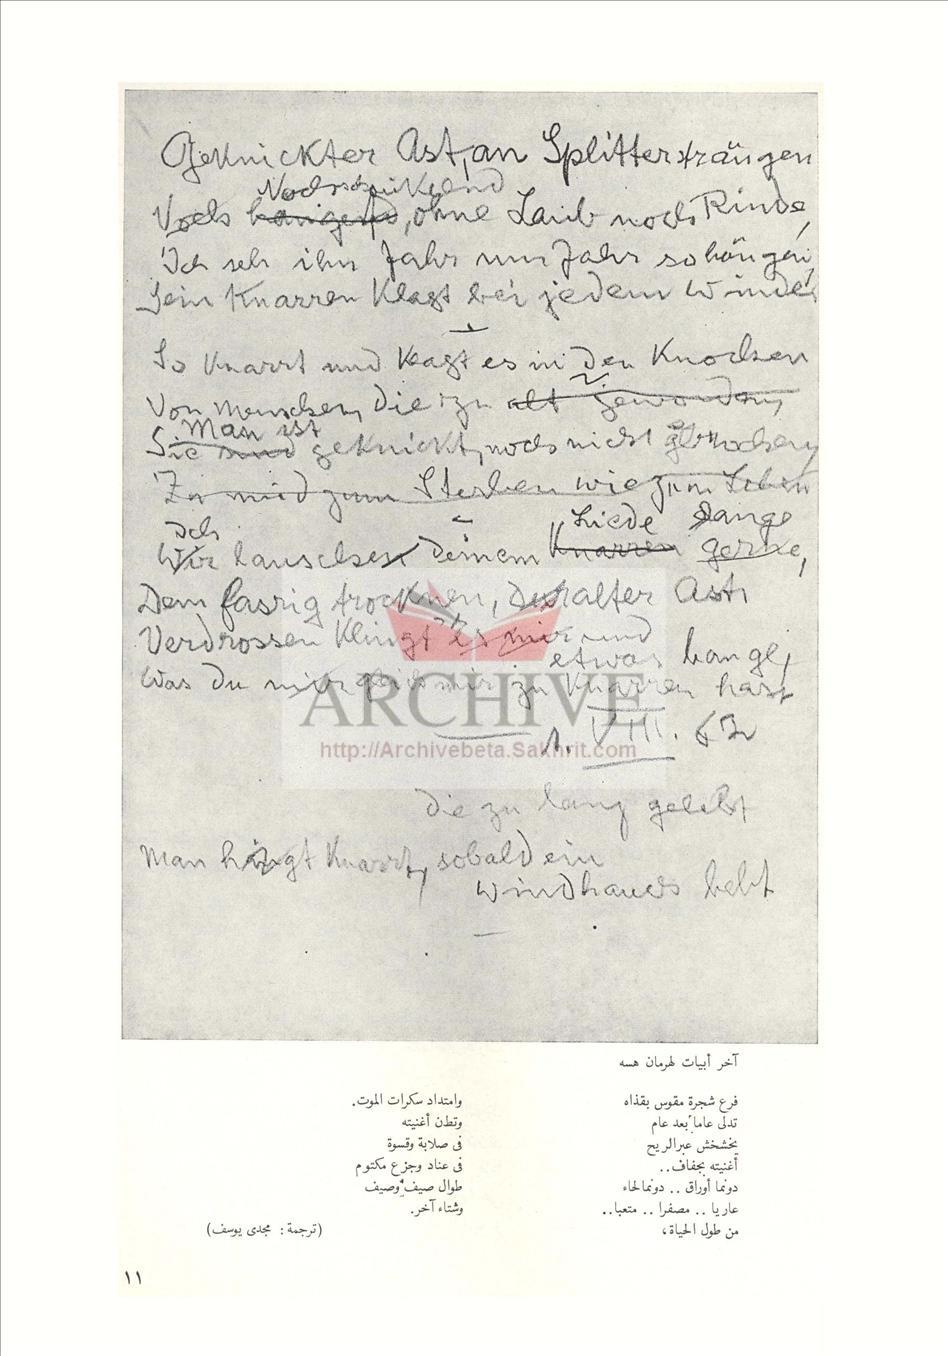 Geknickter Ast, an Splittersträngen
Noch schaukelnd
Noch hangend, ohne Laub noch Rinde,
Ich seh ihn Jahr um Jahr so hängen,
Sein Knarren klagt bei jedem Winde.
So knarrt und klagt es in den Knochen
Von Menschen, die zu alt geworden,
Man ist
Sie sind geknickt, noch nicht gebrochen,
Zu müd zum Sterben wie zum Leben
Ich Liede lange
Wir lauschen deinem Knarren gerne,
Dem fasrig trocknen, alter Ast,
Verdrossen klingt es mir und
etwas bange,
Was du mir zu knarren hast
ARCHIVE
http://Archivebeta.Sakhrit.com
1. VIII. 62
die zu lang gelebt
Man knarrt, sobald ein
Windhauch bebt
آخر أبيات لهرمان هسه
فرع شجرة مقوس بقذاه
تدلى عاما بعد عام
يخشخش عبر الريح
أغنيته بجفاف..
دونما أوراق .. دونما لحاء
عاريا .. مصفرا .. متعبا..
من طول الحياة،
وامتداد سكرات الموت.
وتطن أغنيته
فى صلابة وقسوة
فى عناد وجزع مكتوم
طوال صيف وصيف
وشتاء آخر.
(ترجمة: مجدى يوسف)
١١